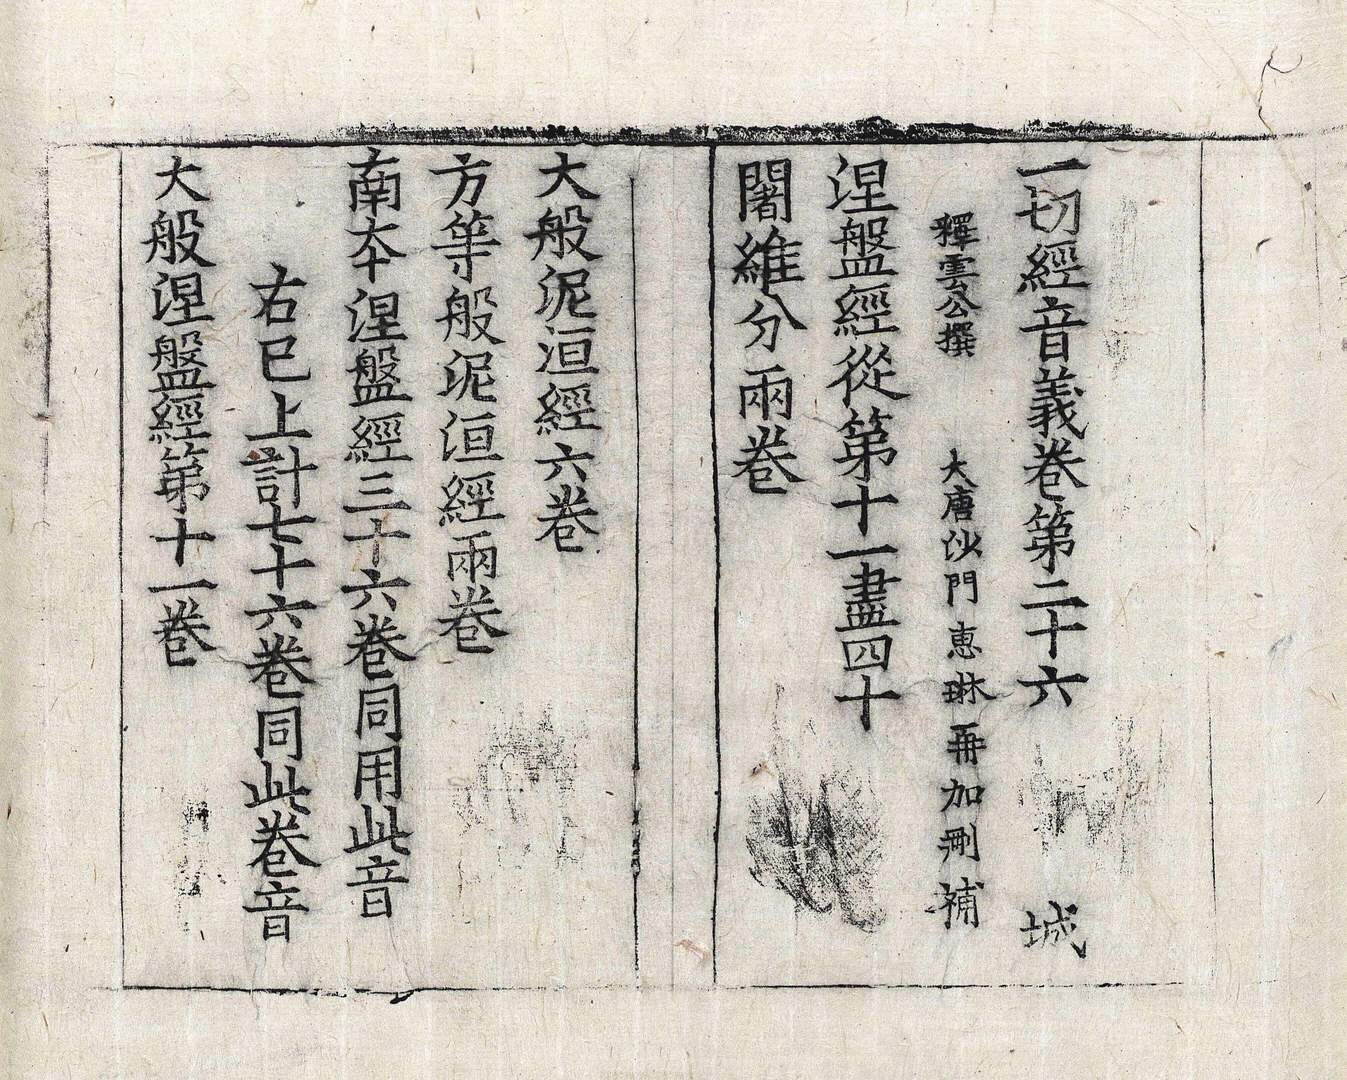 一切經音義卷第二十六 城
釋雲公撰 大唐沙門惠琳再加刪補
涅盤經從第十一盡四十
闍維分兩卷
大般泥洹經六卷
方等般泥洹經兩卷
南本涅盤經三十六卷同用此音
右已上計七十六卷同此卷音
大般涅盤經第十一卷